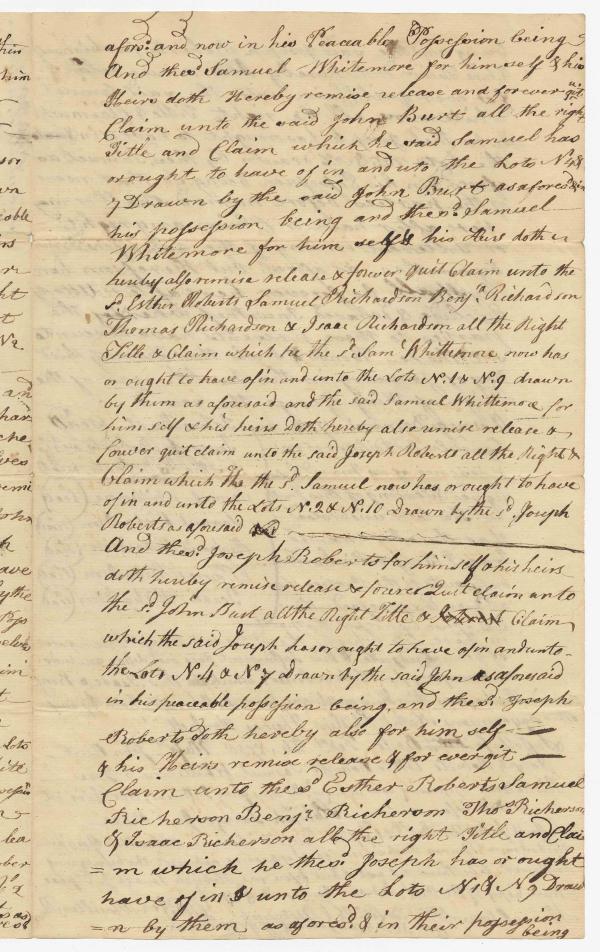 afors.d and now in his Peaceable Possession being
And the s.d Samuel Whitemore for him self & his
Heirs doth Hereby remise release and forever quit
Claim unto the said John Burt all the right
Title and Claim which he said Samuel has
or ought to have of in and uto the Lots N.4 &
7 Drawn by the said John Burt as afores.d & in
his possession being and the s.d Samuel
Whitemore for him self & his Airs doth
hereby also remise release & forever quit Claim unto the
s.d Esther Roberts Samuel Richardson Benj.a Richardson
Thomas Richardson & Isaac Richardson all the Right
Title & Claim which he the s.d Sam.l Whittemore now has
or ought to have of in and unto the Lots N.1 & N.9 drawn
by them as aforesaid and the said Samuel Whittemore for
him self & his heirs Doth hereby also remise release &
forever quit claim unto the said Joseph Roberts all the Right &
Claim which the the s.d Samuel now has or ought to have
of in and unto the Lots N.2 & N.10 Drawn by the s.d Joseph
Roberts as aforesaid
And the s.d Joseph Roberts for himself & his heirs
doth hereby remise release & forever Quit claim unto
the s.d John Burt all the Right Title & Claim
which the said Joseph has or ought to have of in and unto
the Lots N.4 & N.7 Drawn by the said John as aforesaid
in his peaceable possession being, and the s.d Joseph
Roberts doth hereby also for him self
& his Heirs remise release & for ever qit
Claim unto the s.d Esther Roberts Samuel
Richerson Benj.r Richerson Tho.s Richerson
& Isaac Richerson all the right Title and Clai
=m which he the s.d Joseph has or ought
have of in & unto the Lots N1 & N 9 Draw
=n by them as afores.d & in their possession
being